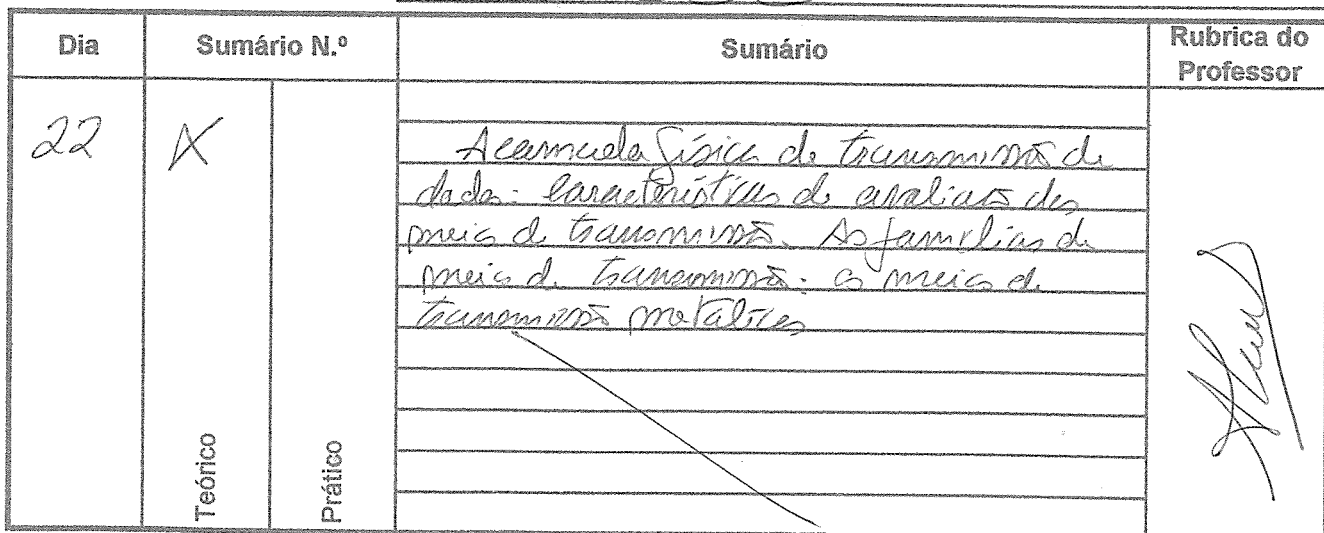 Dia Sumário N.º Sumário Rubrica do Professor
22 X
A camada física de transmissão de
dados: características de avaliação dos
meios de transmissão. As famílias de
meios de transmissão: os meios de
transmissão metálicos
Teórico
Prático